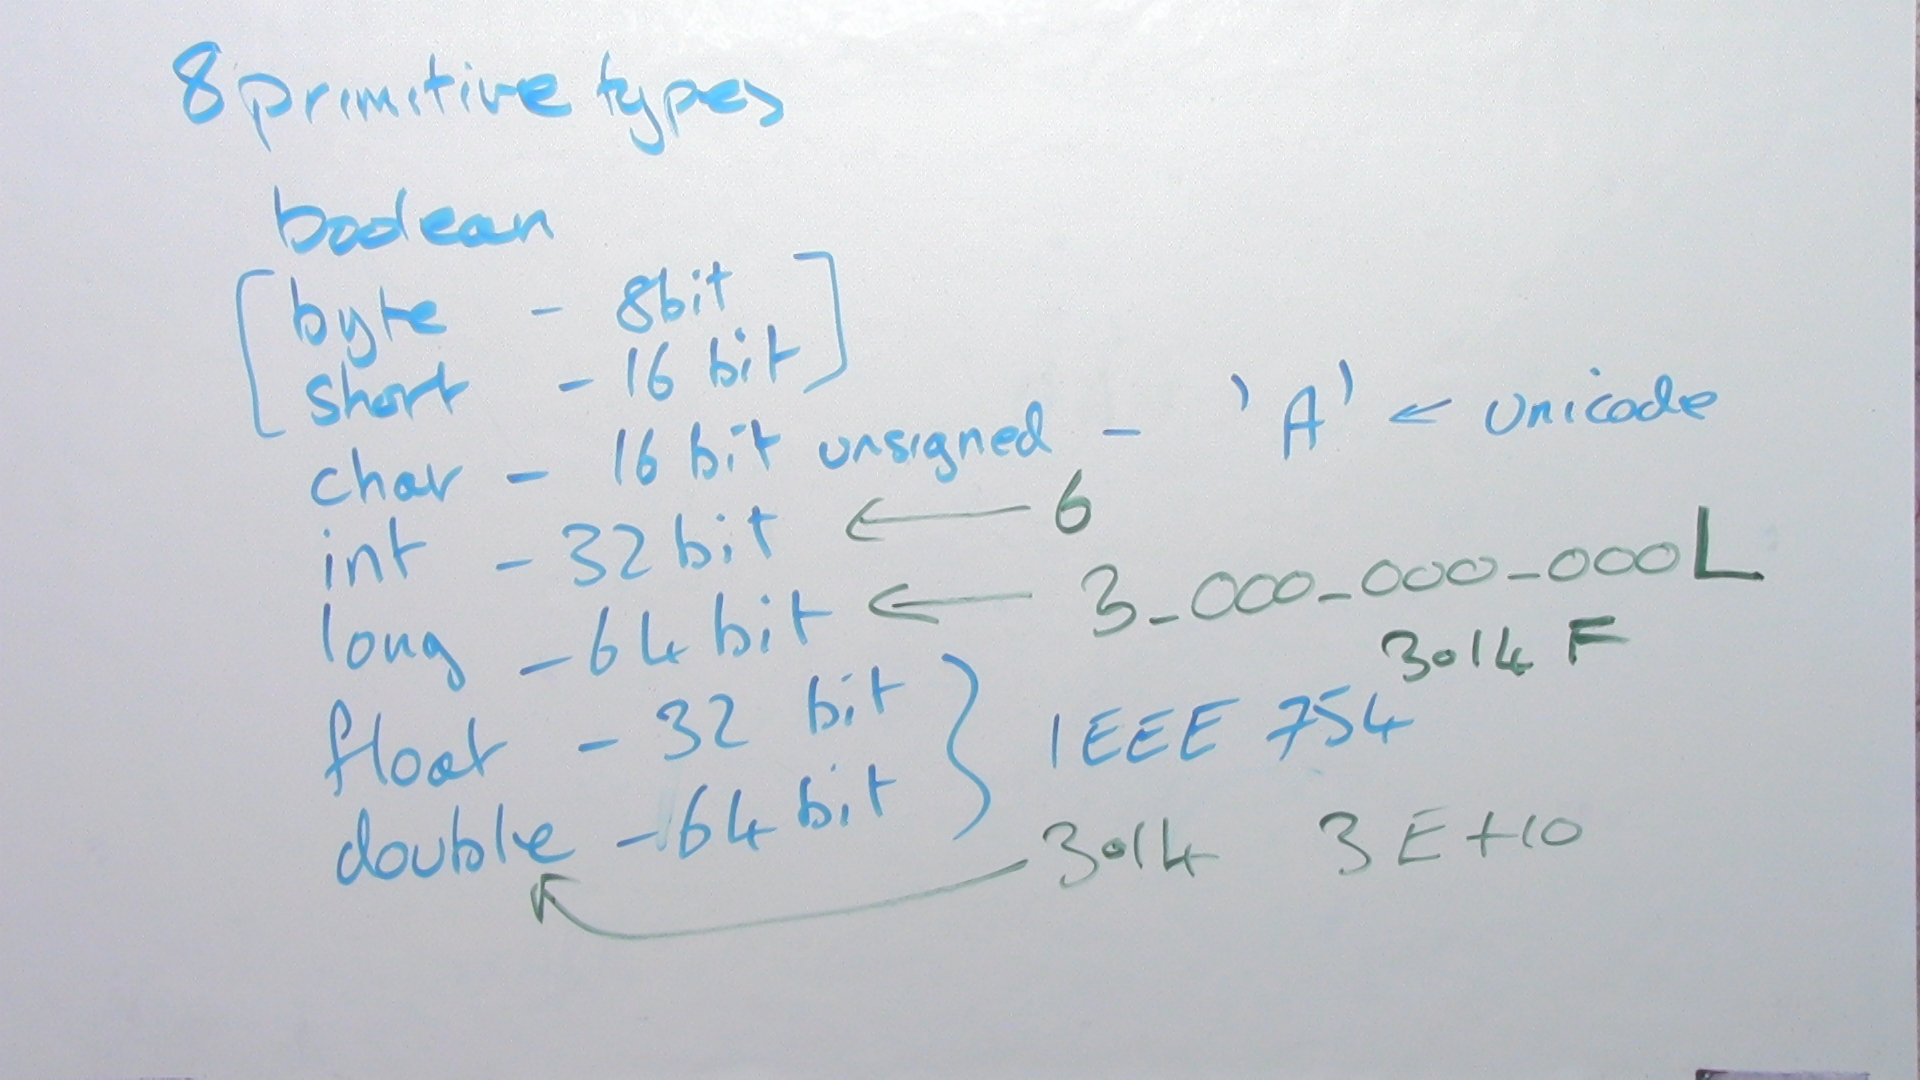 8 primitive types
boolean
[ byte - 8bit ]
[ short - 16 bit ]
char - 16 bit unsigned - 'A' ← unicode
int - 32 bit ← 6
long - 64 bit ← 3_000_000_000L
3.14 F
float - 32 bit } IEEE 754
double - 64 bit
3.14 3 E+10